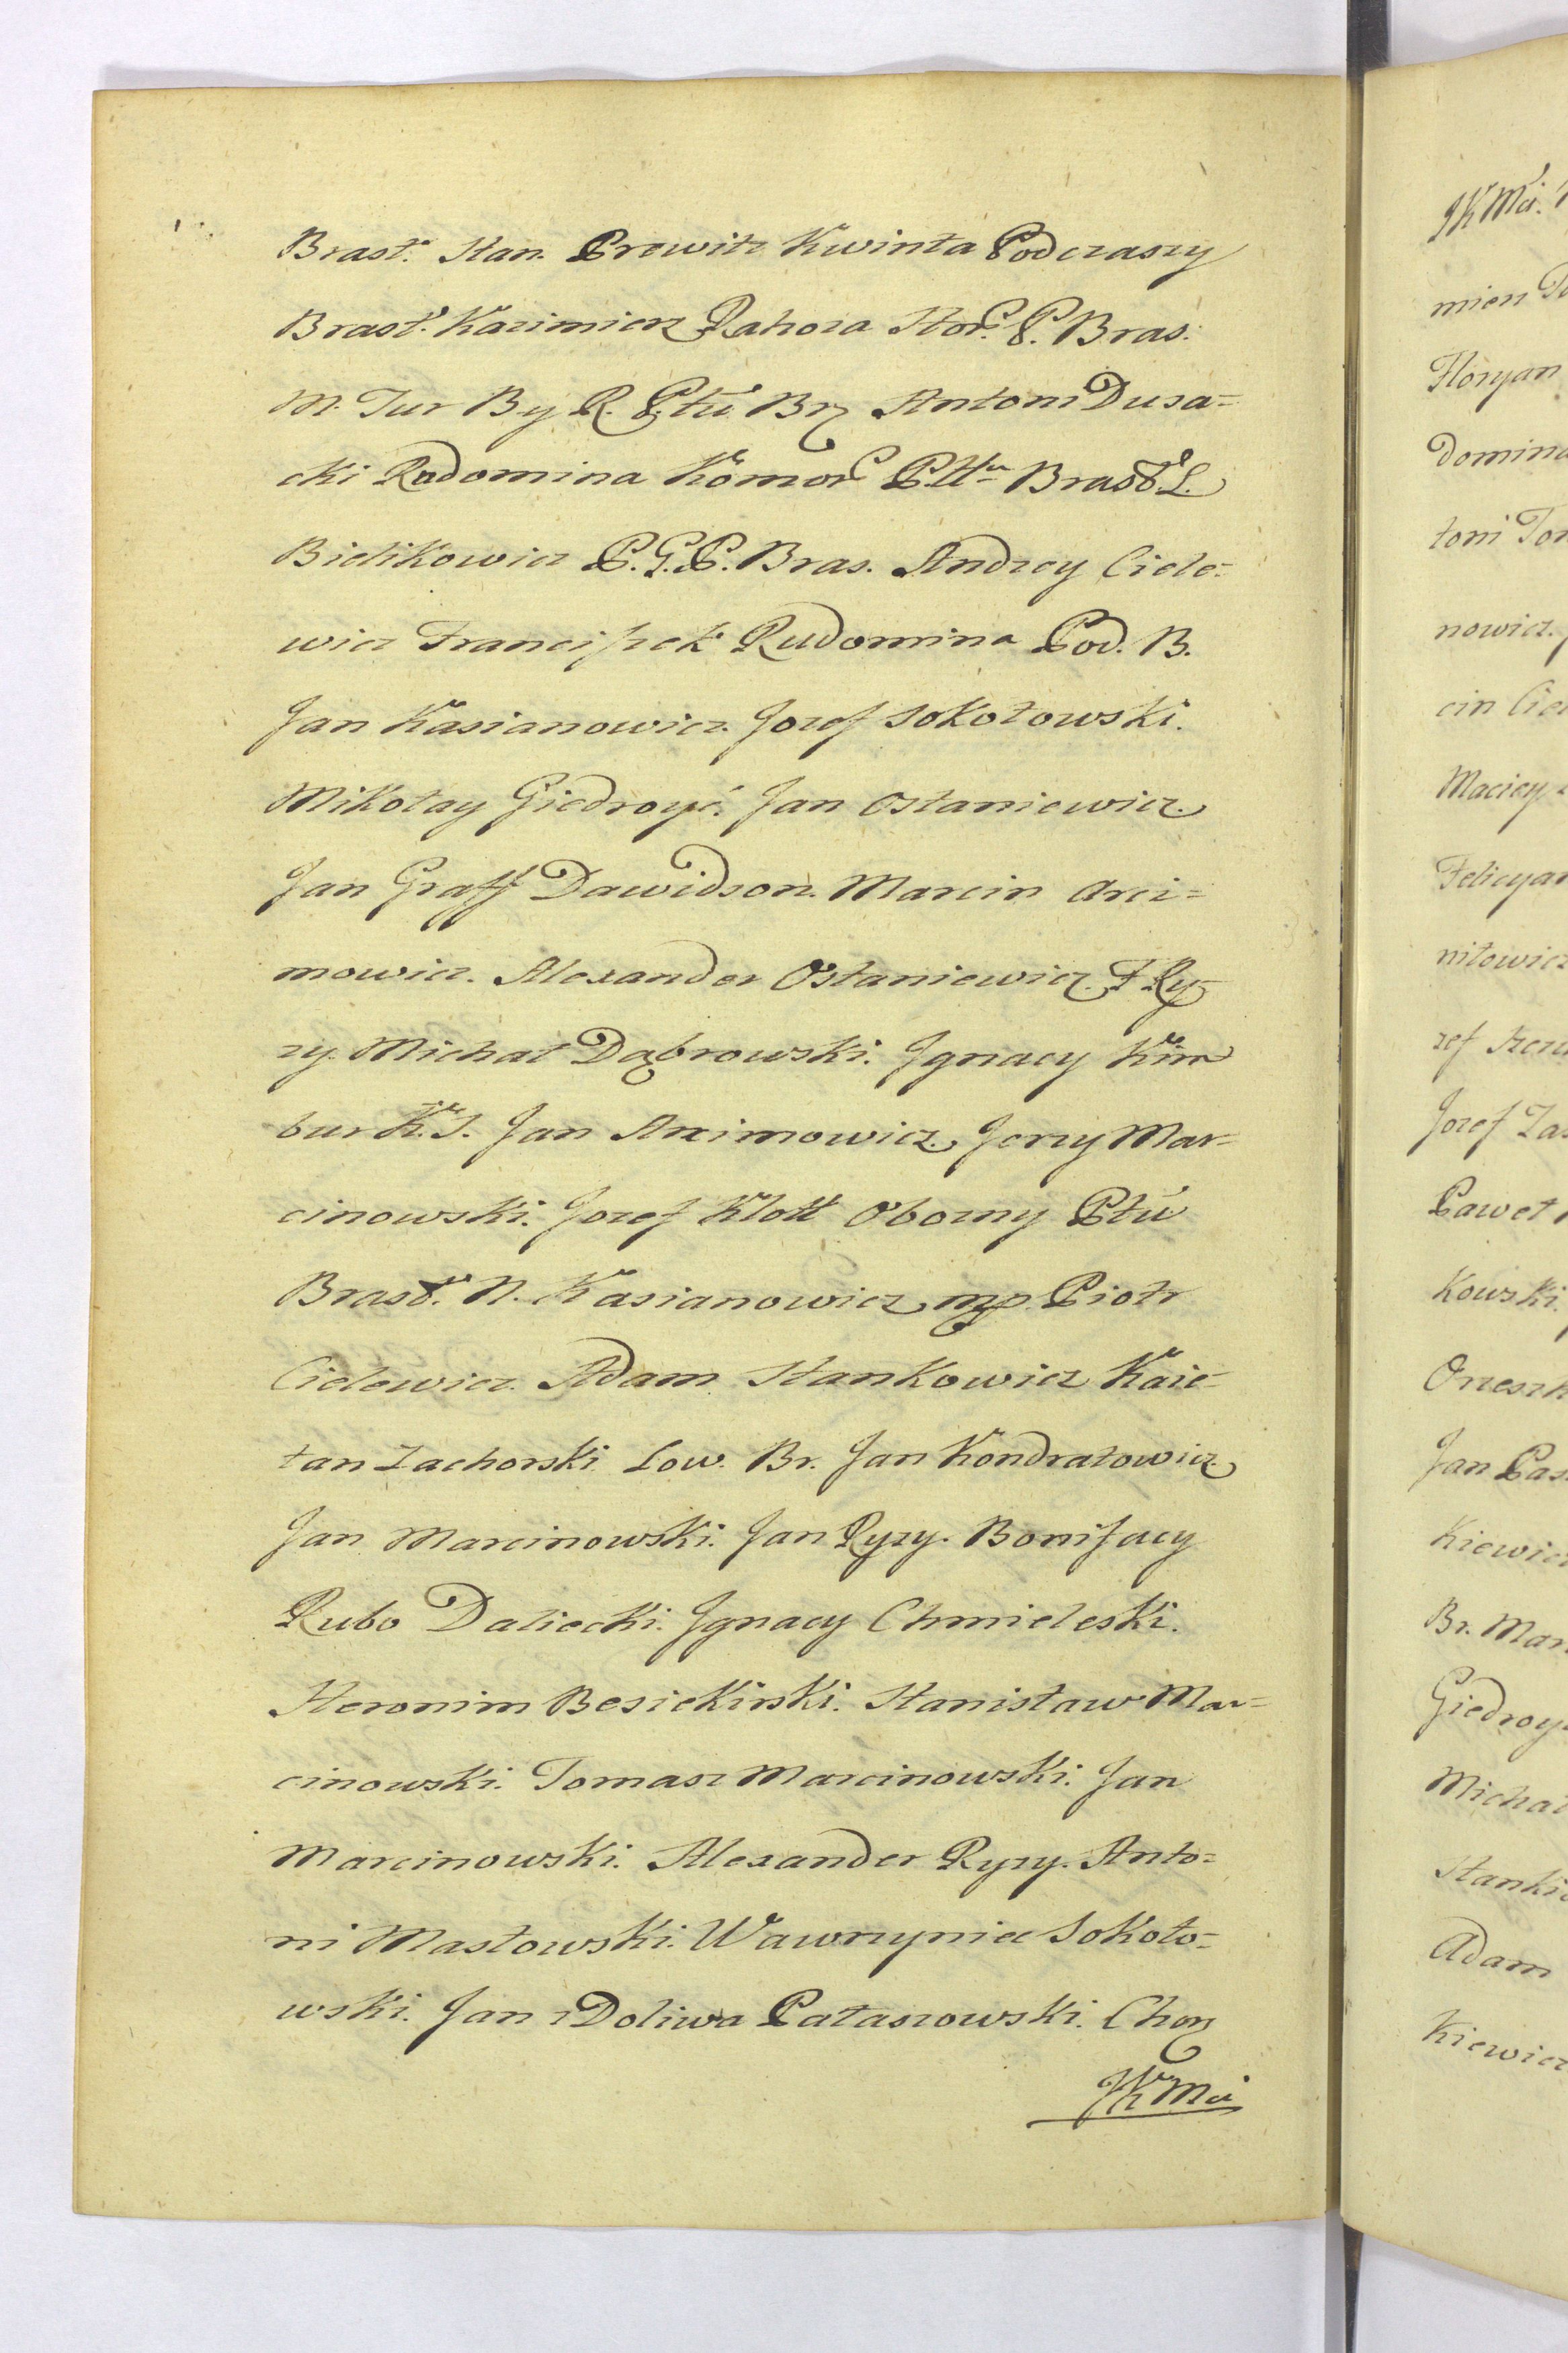 Brast. Stan. Prewitz Kwinta Podczaszy
Brast. Kazimierz Rahoza Hor. P. Bras.
M. Tur By R. Ptu Brz Antoni Dusa=
cki Rudomina Komor Pttu Brasł. L.
Bielikowicz P. G. P. Bras. Andrzey Ciele=
wicz Franciszek Rudomina Pod. B.
Jan Kasianowicz. Jozef Sokołowski.
Mikołay Giedroyć. Jan Ostaniewicz
Jan Graff Dawidson. Marcin Arci=
mowicz. Alexander Ostaniewicz. F Ry=
zy. Michał Dąbrowski. Ignacy Kim
bur K. S. Jan Arcimowicz. Jerzy Mar=
cinowski. Jozef Klott Oboźny Ptu
Brasł. N. Kasianowicz mp. Piotr
Cielewicz. Adam Stankowicz Kaie=
tan Zachorski Łow. Br. Jan Kondratowicz
Jan Marcinowski. Jan Ryzy. Bonifacy
Rubo Daliecki. Ignacy Chmieleski.
Heronim Besiekirski. Stanisław Mar=
cinowski. Tomasz Marcinowski. Jan
Marcinowski. Alexander Ryzy. Anto=
ni Masłowski. Wawrzyniec Sokoło=
wski. Jan z Doliwa Pataszowski. Chorz
JKMci
JKMci.
mien
Floryan
Domin
toni
nowicz.
cin
Maciey
Felicyan
niłowicz
zef
Jozef
Paweł
kowski.
Orzeszk
Jan
kiewicz
Br. Mar
Giedroy
Michał
Stanki
Adam
kiewicz